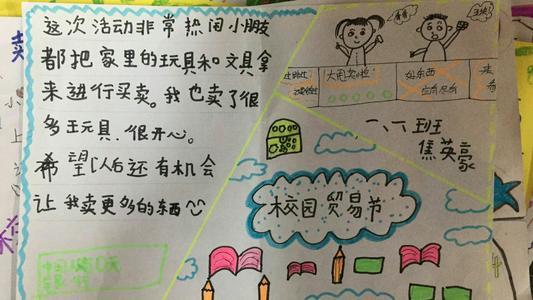 这次活动非常热闹小朋友
都把家里的玩具和文具拿
来进行买卖。我也卖了很
多玩具,很开心。
希望以后还有机会
让我卖更多的东西
大甩卖啦
好东西
一、六班
焦英豪
校园贸易节
中国